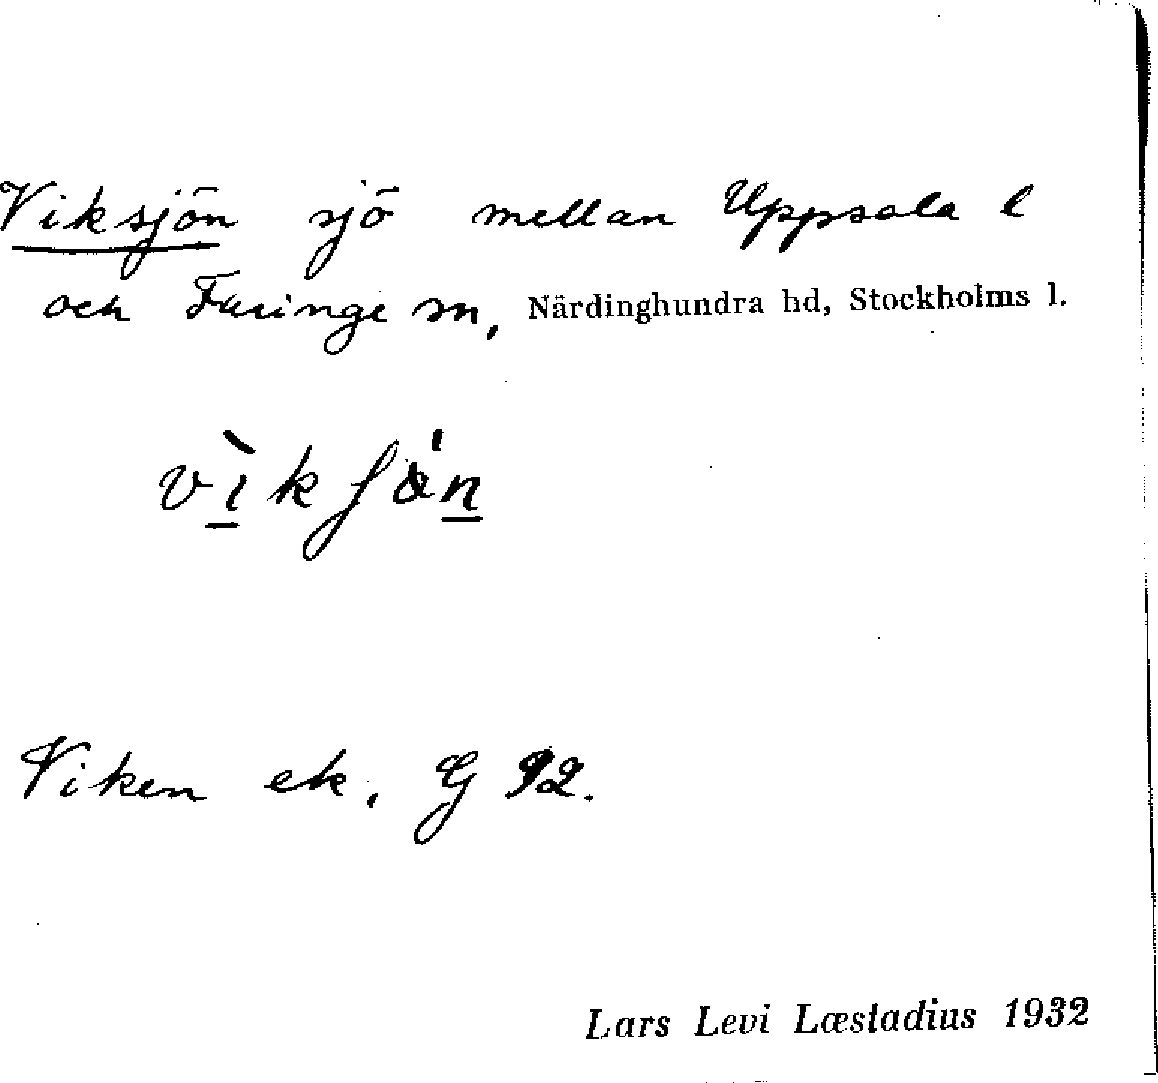 Viksjön sjö mellan Uppsala l
och Faringe sn, Närdinghundra hd, Stockholms l.
vìkʃȯn
Viken ek. G 92.
Lars Levi Læstadius 1932